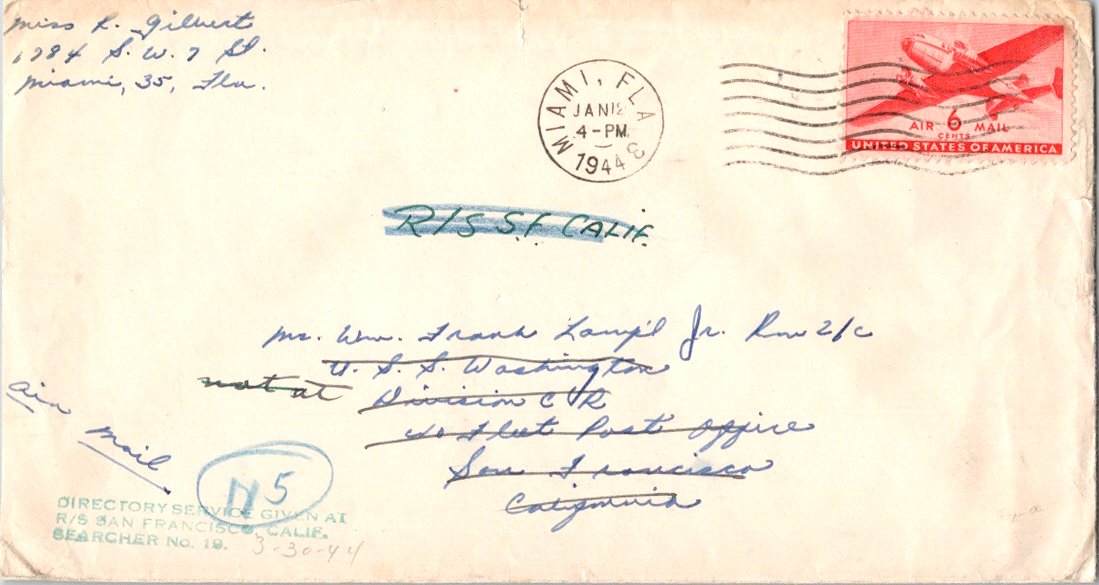 Miss R. Gilbert
1784 S. W. 7 St.
Miami, 35, Fla.
MIAMI, FLA 3
JAN 12
4-PM
1944
AIR 6 MAIL
CENTS
UNITED STATES OF AMERICA
R/S S.F. CALIF.
Mr. Wm. Frank Lampl Jr. Rm 2/c
U. S. S. Washington
not at
Division C R
c/o Fleet Post Office
San Francisco
California
Air
Mail
N 5
DIRECTORY SERVICE GIVEN AT
R/S SAN FRANCISCO, CALIF.
SEARCHER No. 19.
3-30-44